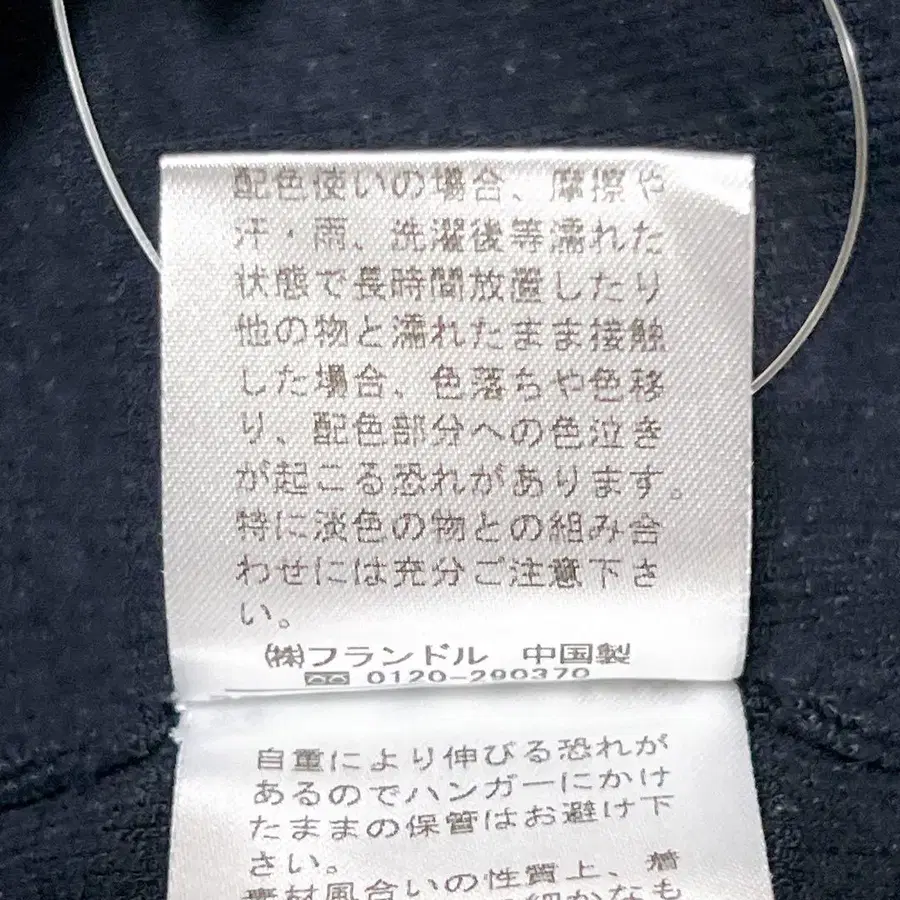 配色使いの場合、摩擦や
汗・雨、洗濯後等濡れた
状態で長時間放置したり
他の物と濡れたまま接触
した場合、色落ちや色移
り、配色部分への色泣き
が起こる恐れがあります。
特に淡色の物との組み合
わせには充分ご注意下さ
い。
㈱フランドル 中国製
0120-290370
自重により伸びる恐れが
あるのでハンガーにかけ
たままの保管はお避け下
さい。
素材風合いの性質上、着
細かなも